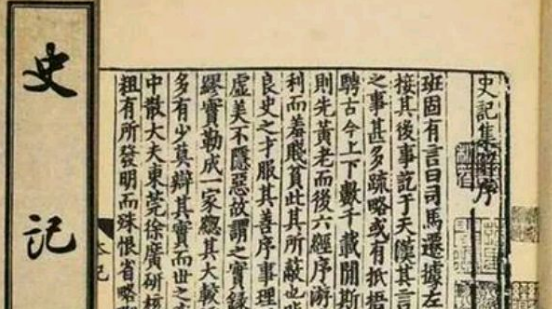 史记
史記集解序
班固有言曰司馬遷據左
接其後事訖于天漢其言
之事甚多疏略或有抵捂
騁古今上下數千載閒斯
則先黃老而後六經序游
利而羞賤貧此其所蔽也
良史之才服其善序事理
虛美不隱惡故謂之實錄
繆實勒成一家緫其大較
多有少莫辯其實而世之
中散大夫東莞徐廣研核
粗有所發明而殊恨省略